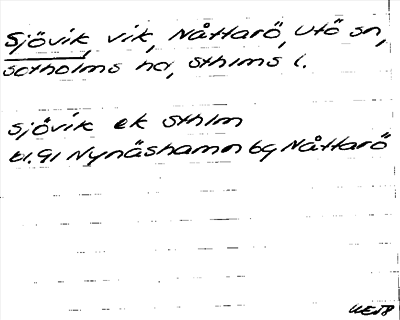 Sjövik, vik, Nåttarö, Utö sn,
Sotholms hd, Sthlms l.
Sjövik ek Sthlm
bl. 91 Nynäshamn bg Nåttarö